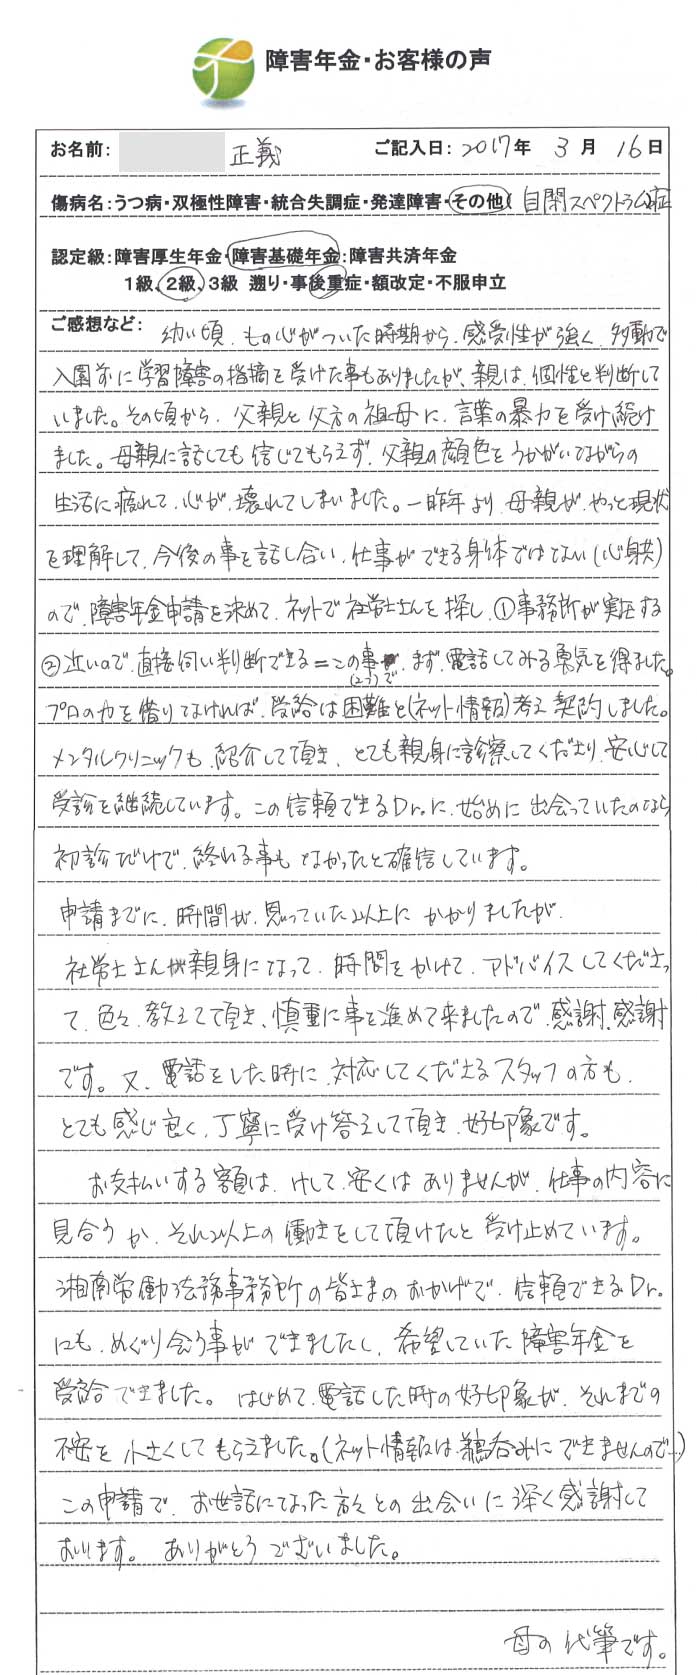 障害年金・お客様の声
お名前: 正義 ご記入日: 2017年 3月 16日
傷病名:うつ病・双極性障害・統合失調症・発達障害・その他( 自閉スペクトラム症
認定級:障害厚生年金・障害基礎年金:障害共済年金
1級、2級、3級 遡り・事後重症・額改定・不服申立
ご感想など: 幼い頃、もの心がついた時期から、感受性が強く、多動で
入園前に学習障害の指摘を受けた事もありましたが、親は、個性と判断して
いました。その頃から、父親と父方の祖母に、言葉の暴力を受け続け
ました。母親に話しても信じてもらえず、父親の顔色をうかがいながらの
生活に疲れて、心が、壊れてしまいました。一昨年より、母親が、やっと現状
を理解して、今後の事を話し合い、仕事ができる身体ではない(心身共)
ので、障害年金申請を決めて、ネットで社労士さんを探し、①事務所が実在する
②近いので、直接伺い判断できる=この事(2つ)で、まず、電話してみる勇気を得ました。
プロの力を借りなければ、受給は困難と(ネット情報)考え契約しました。
メンタルクリニックも、紹介して頂き、とても親身に診察してくださり、安心して
受診を継続しています。この信頼できるDr.に、始めに出会っていたのなら
初診だけで、終れる事もなかったと確信しています。
申請までに、時間が、思っていた以上にかかりましたが、
社労士さんが親身になって、時間をかけて、アドバイスしてくださっ
て、色々、教えて頂き、慎重に事を進めて来ましたので、感謝、感謝
です。又、電話をした時に、対応してくださるスタッフの方も、
とても感じ良く、丁寧に受け答えして頂き、好印象です。
お支払いする額は、けして、安くはありませんが、仕事の内容に
見合うか、それ以上の働きをして頂けたと受け止めています。
湘南労働法務事務所の皆さまのおかげで、信頼できるDr.
にも、めぐり会う事ができましたし、希望していた障害年金を
受給できました。はじめて、電話した時の好印象が、それまでの
不安を小さくしてもらえました。(ネット情報は、鵜呑みにできませんので…)
この申請で、お世話になった方々との出会いに深く感謝して
おります。ありがとうございました。
母の代筆です。